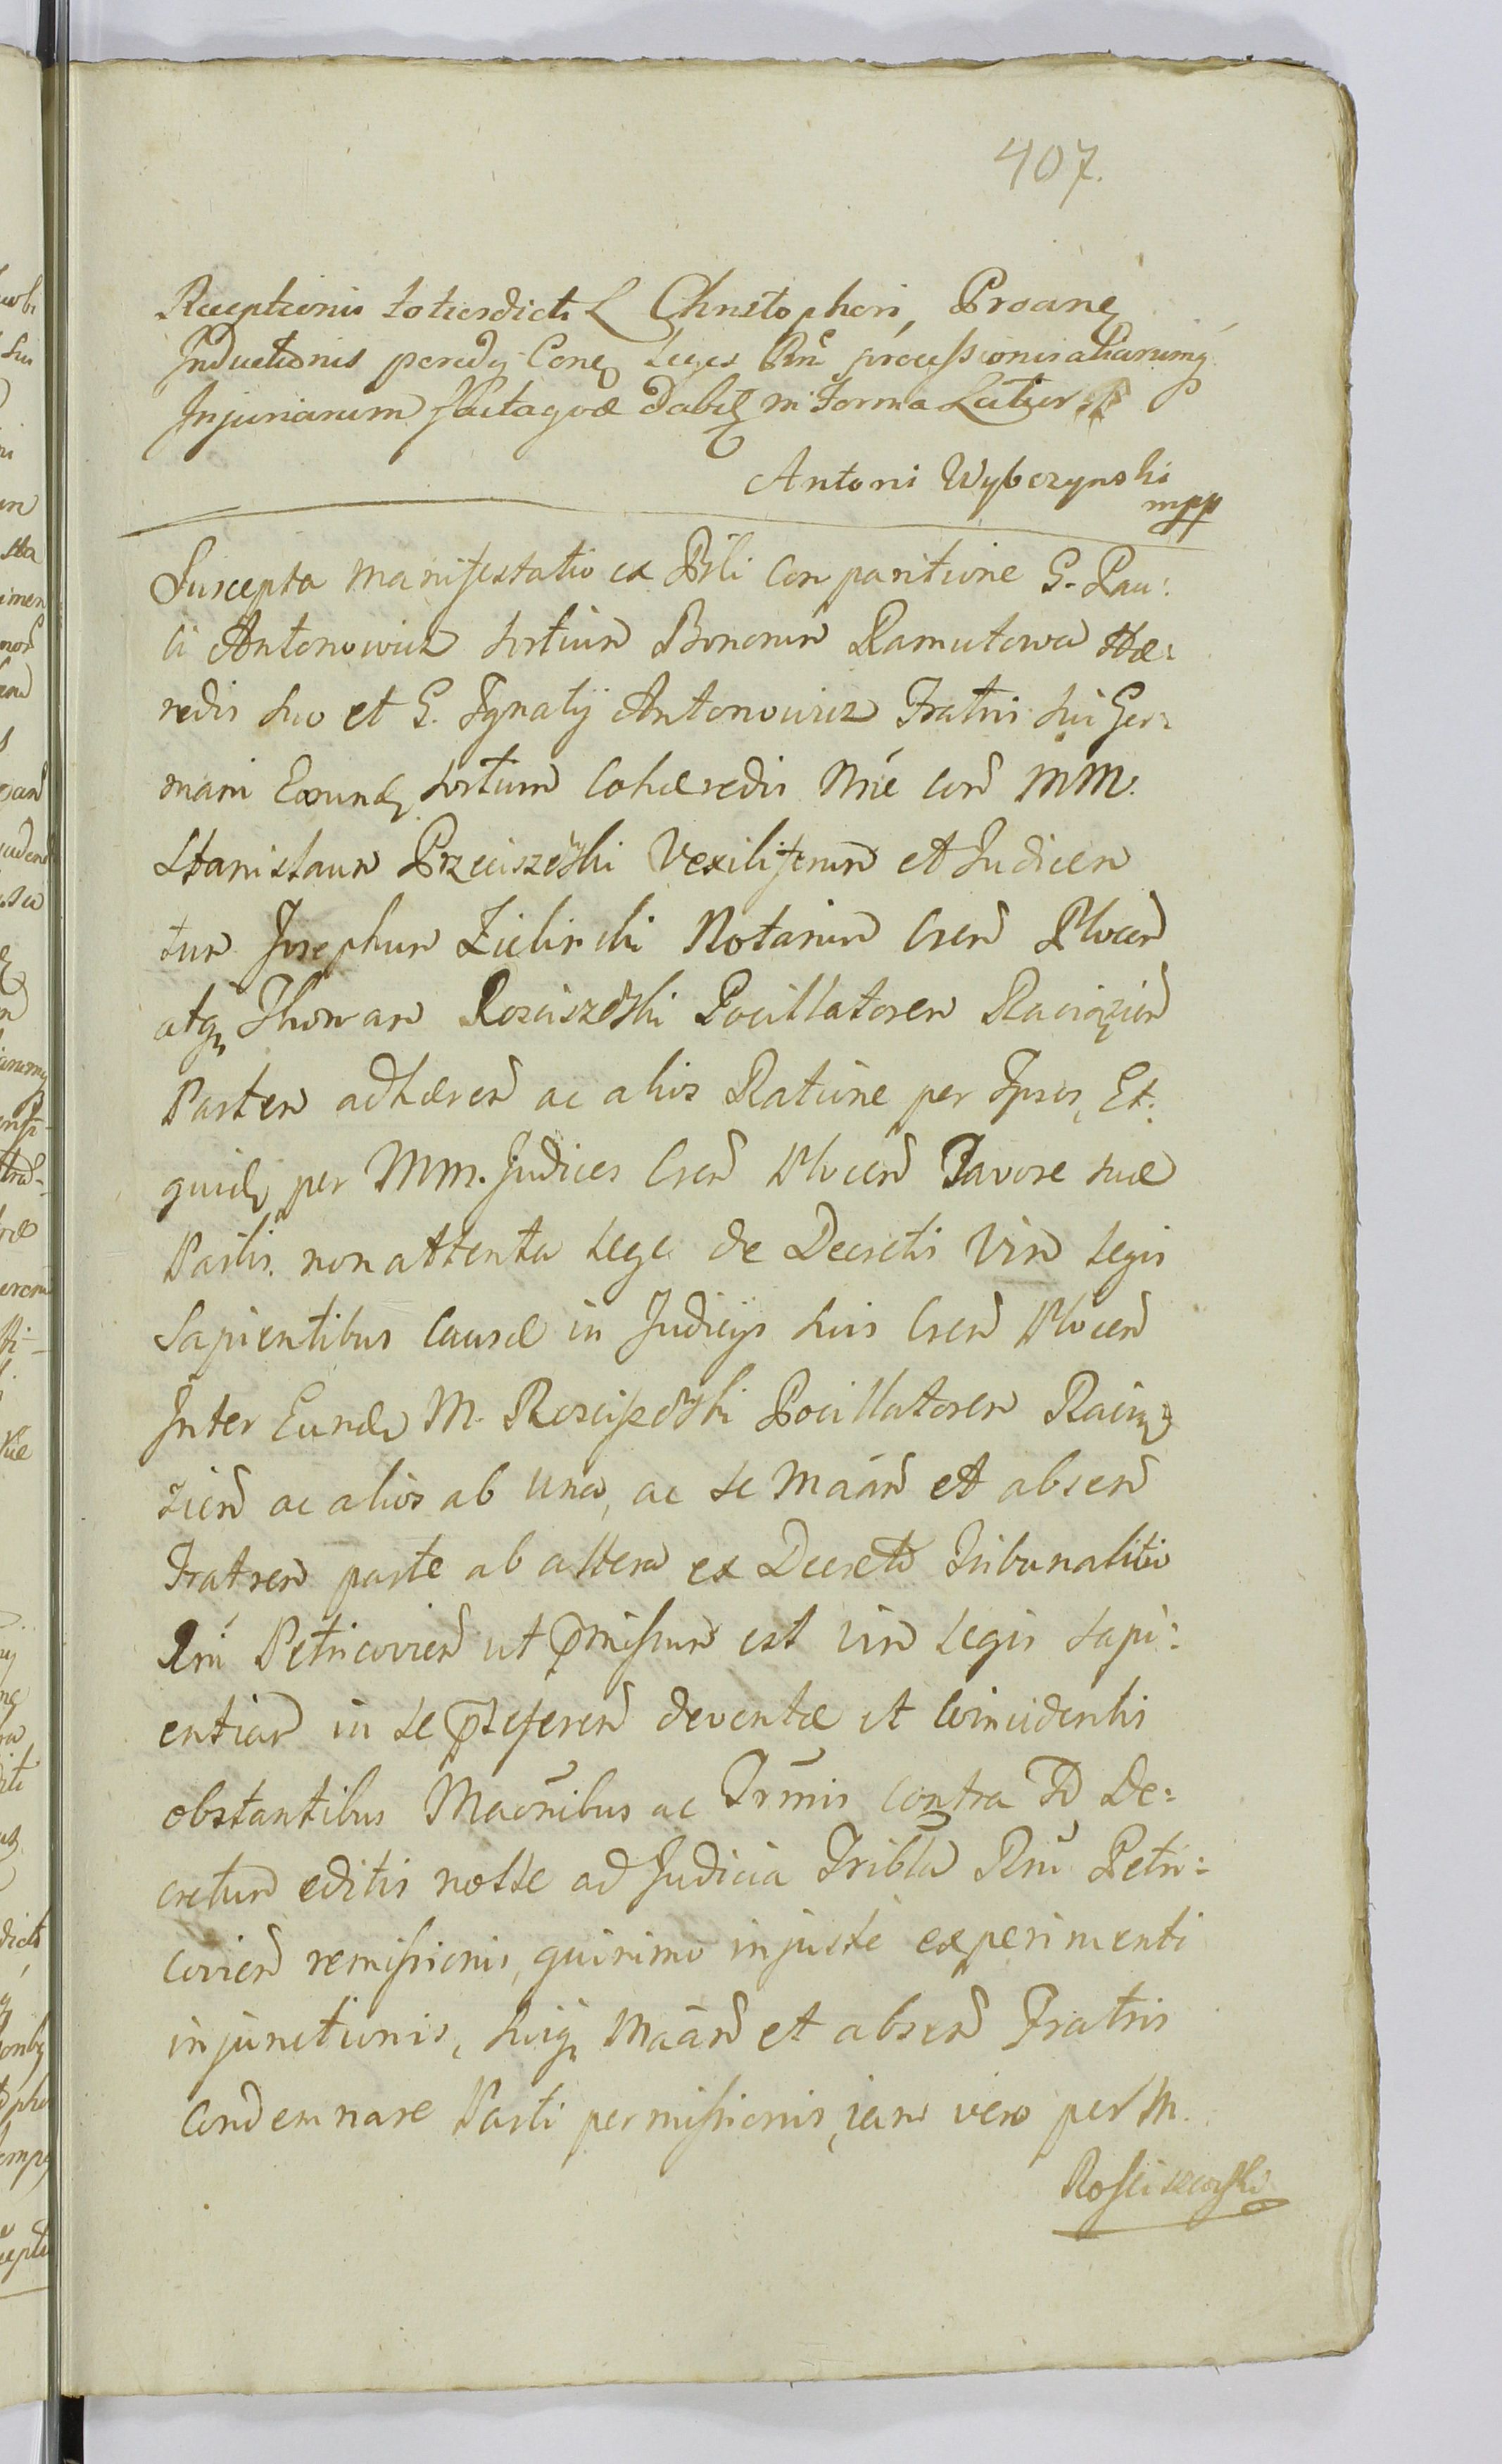 407.
Receptionis totiesdicti L Christophori, Proane
Inductionis paredij Conq Leges Rni processionis aliarumq
Injuriarum factaque dabit in Forma Latiori
Antoni Wybczynski
mpp
Suscepta manifestatio ex Psli Comparitione G. Pau:
li Antonowicz sortium Bonorum Ramutowa Hæ:
redis suo et G. Ignatij Antonowicz Fratris sui Ger:
mani Eorund sortium Cohæredis Nnie con MM.
Stanislaum Przeciszewski Vexiliferum et Judicem
tum Josephum Zielinski Notarium Cren Plocen
atq Thomam Rosciszewski Pocillatorem Raciązien
Partem adhæren ac alios Ratione per Ipsos, Et
quid per MM. Judices Cren Plocen Favore suæ
Partis non attenta Lege de Decretis Viris Legis
Sapientibus Causæ in Judicijs suis Cren Plocen
Inter Eund M. Rosciszewski Pocillatorem Raciąz
zien ac alios ab una, ac se Maan et absen
Fratrem parte ab altera ex Decreto Tribunalitio
Rni Petricovien ut pmissum est viris Legis sapi:
entiae in se pseferen deventæ et Coincidentis
obstantibus Maonibus ac Trmis contra Id De:
cretum editis nosse ad Judicia Tribla Rni Petri:
covien remissionis, quinimo injuste experimenti
injunctionis, suiq Maan et absen Fratris
Condemnare Parti permissionis, iam vero per M.
Rosciszewski